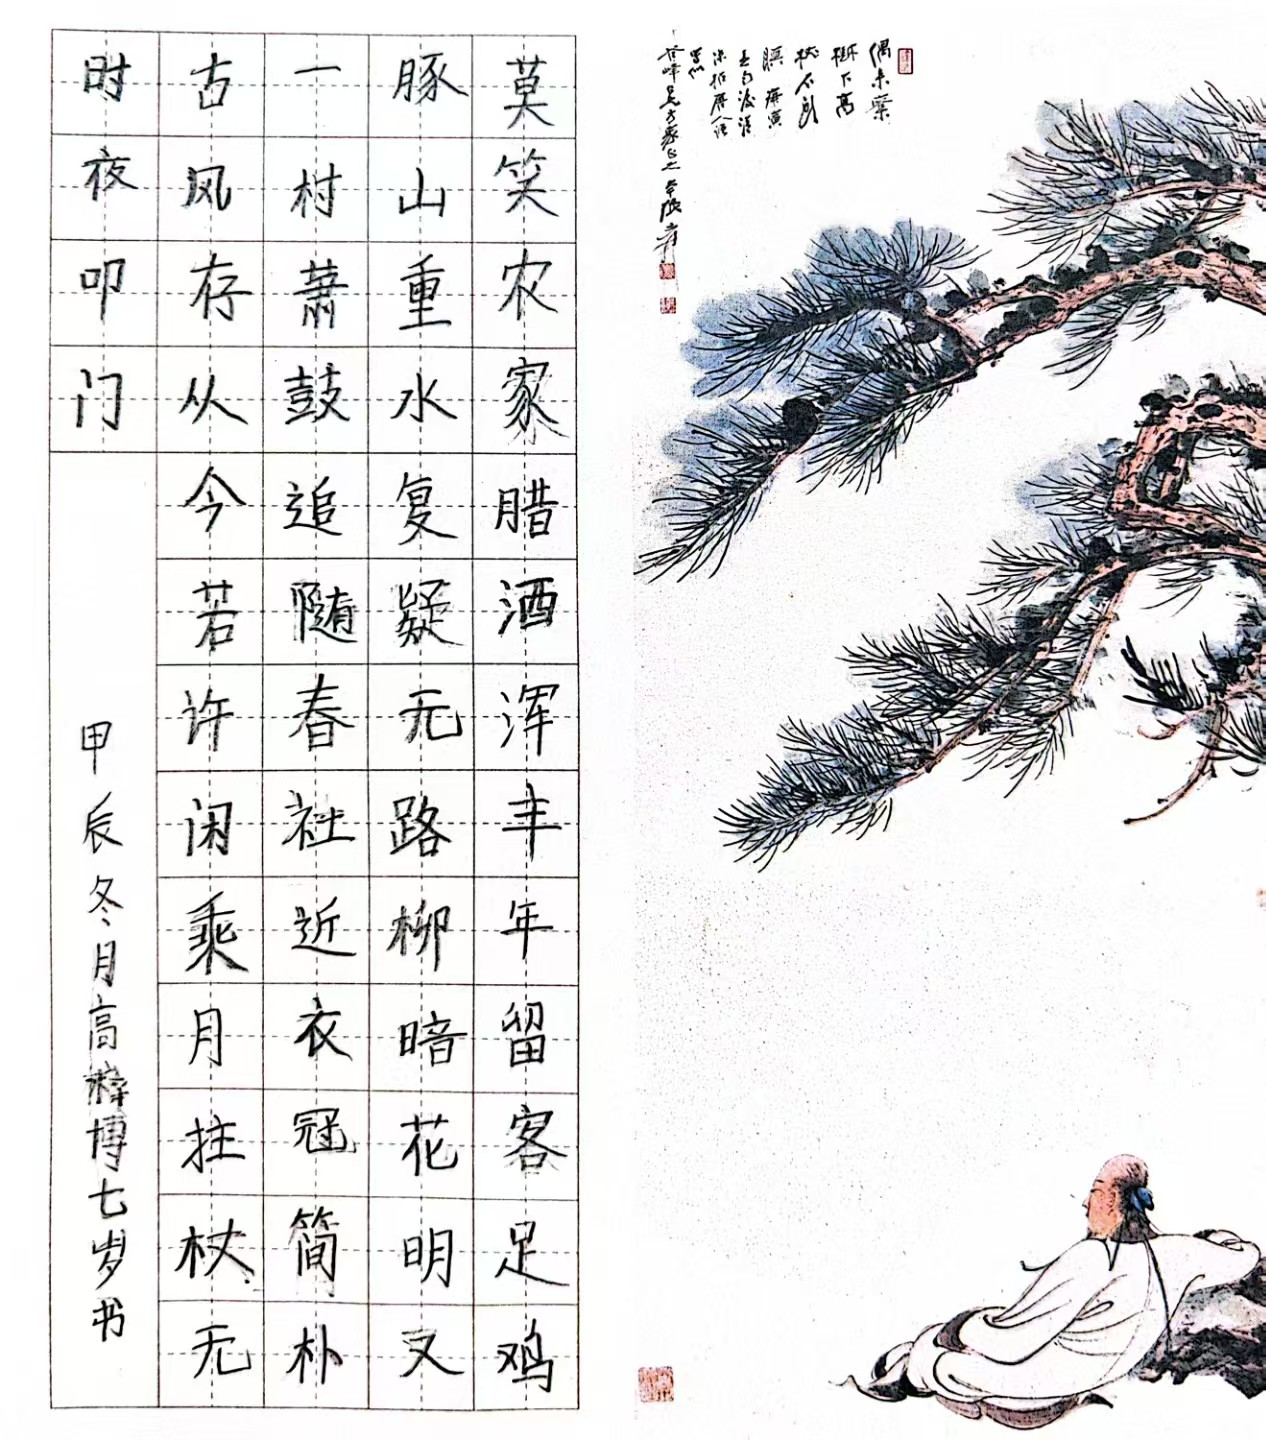 莫笑农家腊酒浑丰年留客足鸡
豚山重水复疑无路柳暗花明又
一村萧鼓追随春社近衣冠简朴
古风存从今若许闲乘月拄杖无
时夜叩门
甲辰冬月高梓博七岁书
偶来
樹下高
枕石頭
眠 庚寅